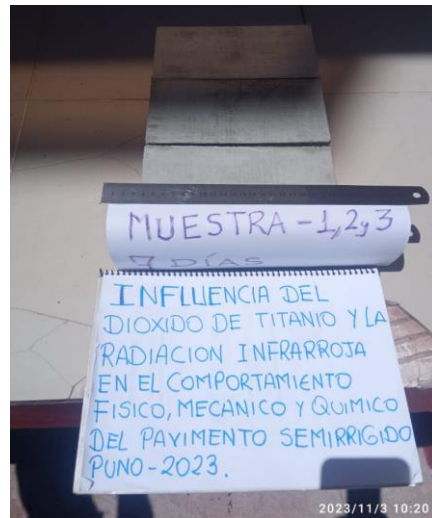 MUESTRA - 1, 2 y 3
7 DÍAS
INFLUENCIA DEL
DIOXIDO DE TITANIO Y LA
RADIACION INFRARROJA
EN EL COMPORTAMIENTO
FISICO, MECANICO Y QUIMICO
DEL PAVIMENTO SEMIRRIGIDO
PUNO-2023.
2023/11/3 10:20